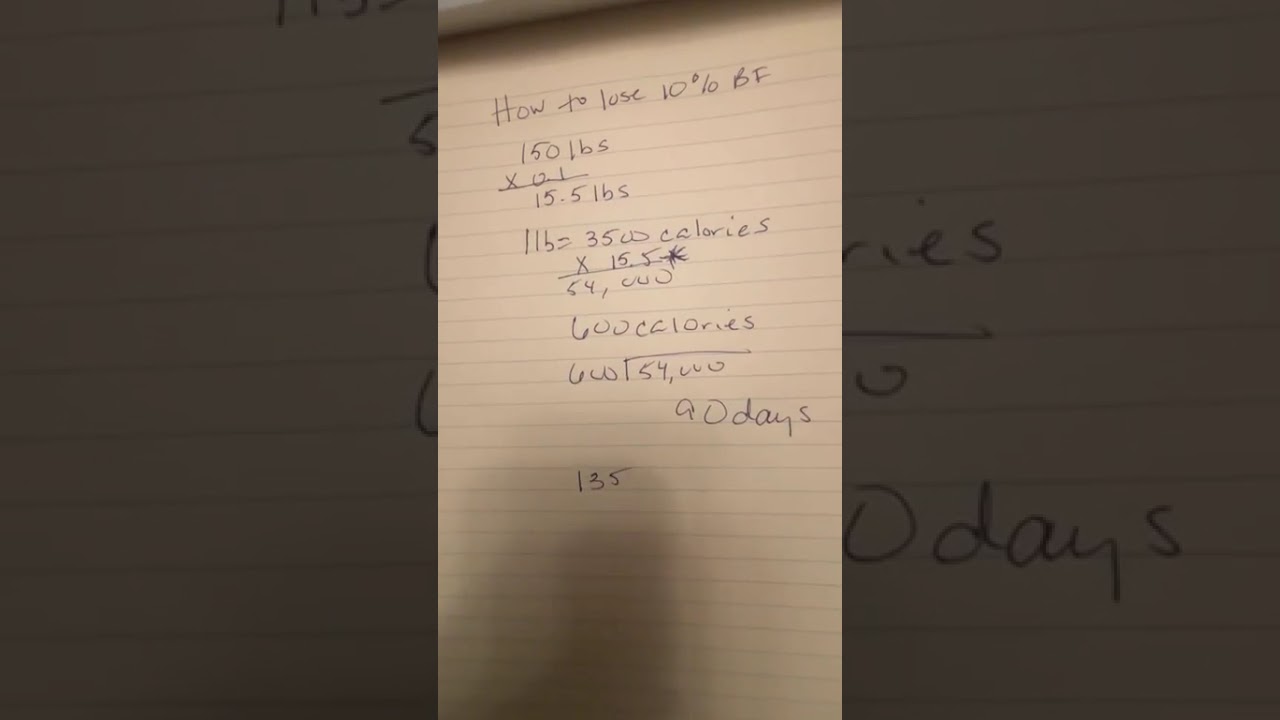 How to lose 10% BF
150 lbs
x 0.1
15.5 lbs
1lb= 3500 calories
x 15.5
54,000
600 calories
600 54,000
90 days
135